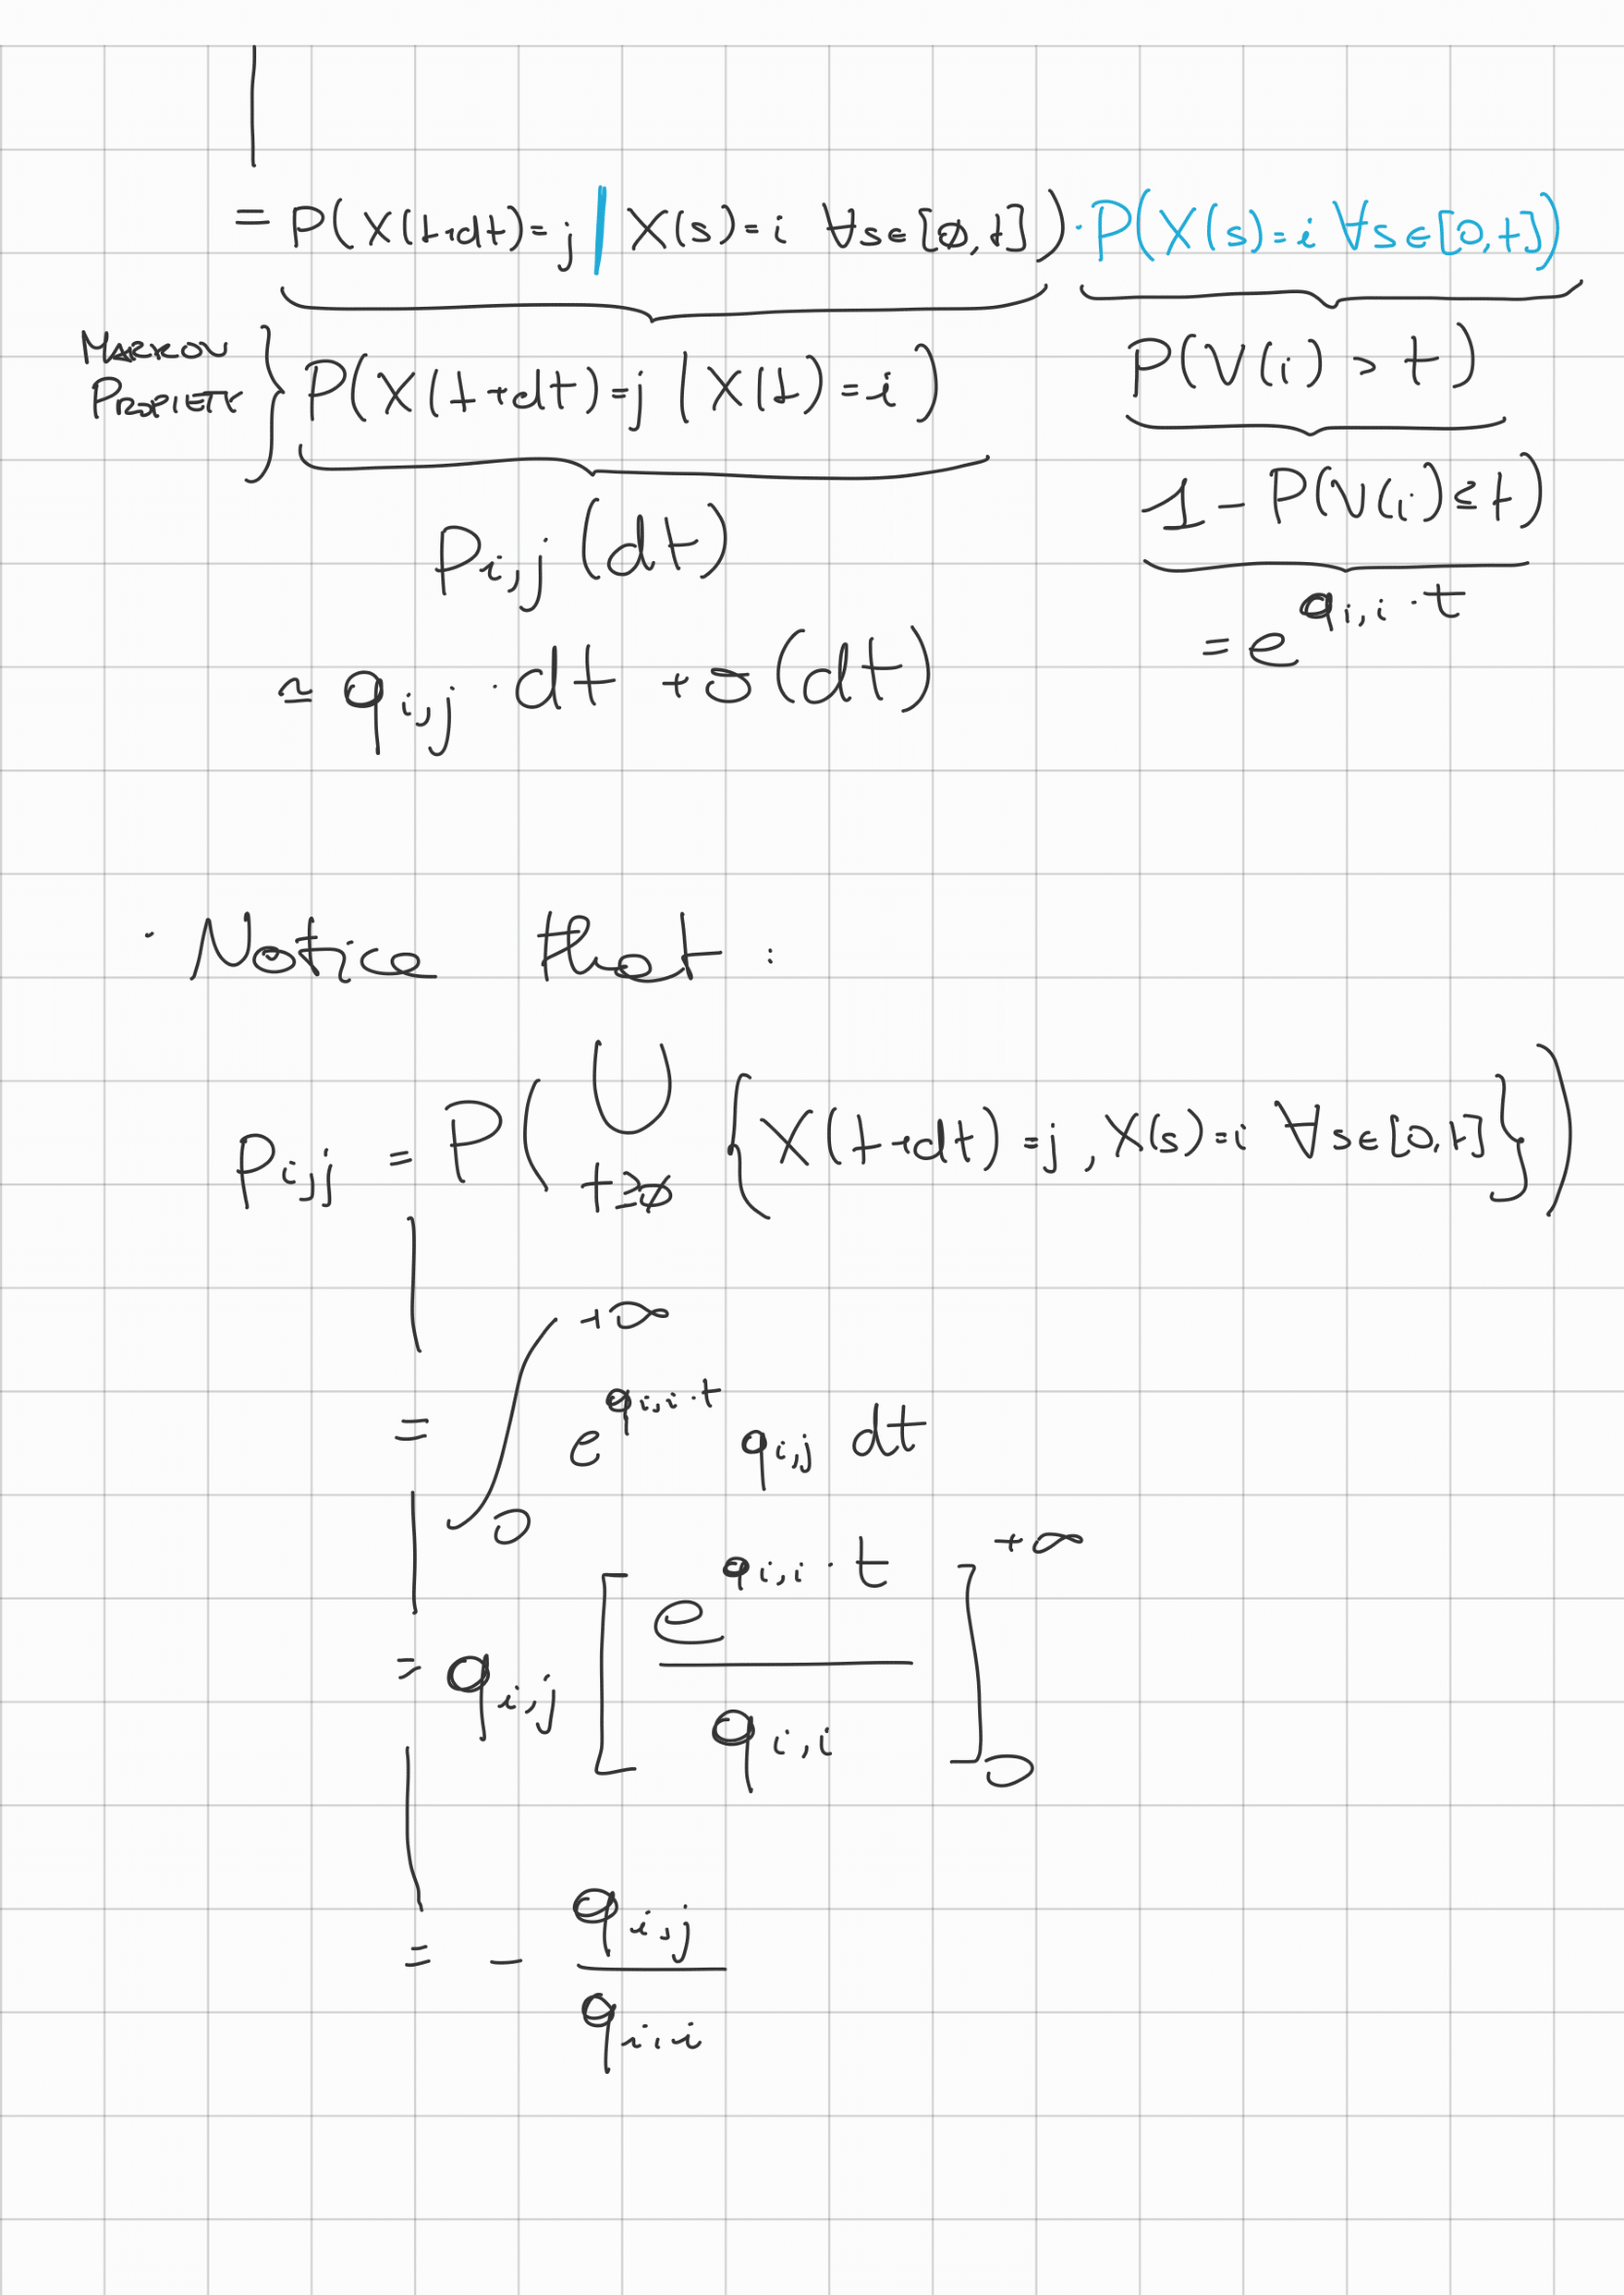 = P(X(t+dt)=j | X(s)=i ∀s∈[0,t]) · P(X(s)=i ∀s∈[0,t])
Markov
Property } P(X(t+dt)=j | X(t)=i) P(V(i) > t)
1 - P(V(i) ≤ t)
p_{i,j}(dt)
= e^{q_{i,i}·t}
≃ q_{i,j} · dt + o(dt)
· Notice that :
p_{i,j} = P( ⋃_{t≥0} { X(t+dt)=j, X(s)=i ∀s∈[0,t] } )
= ∫_0^{+∞} e^{q_{i,i}·t} q_{i,j} dt
= q_{i,j} [ e^{q_{i,i}·t} / q_{i,i} ]_0^{+∞}
= - q_{i,j} / q_{i,i}